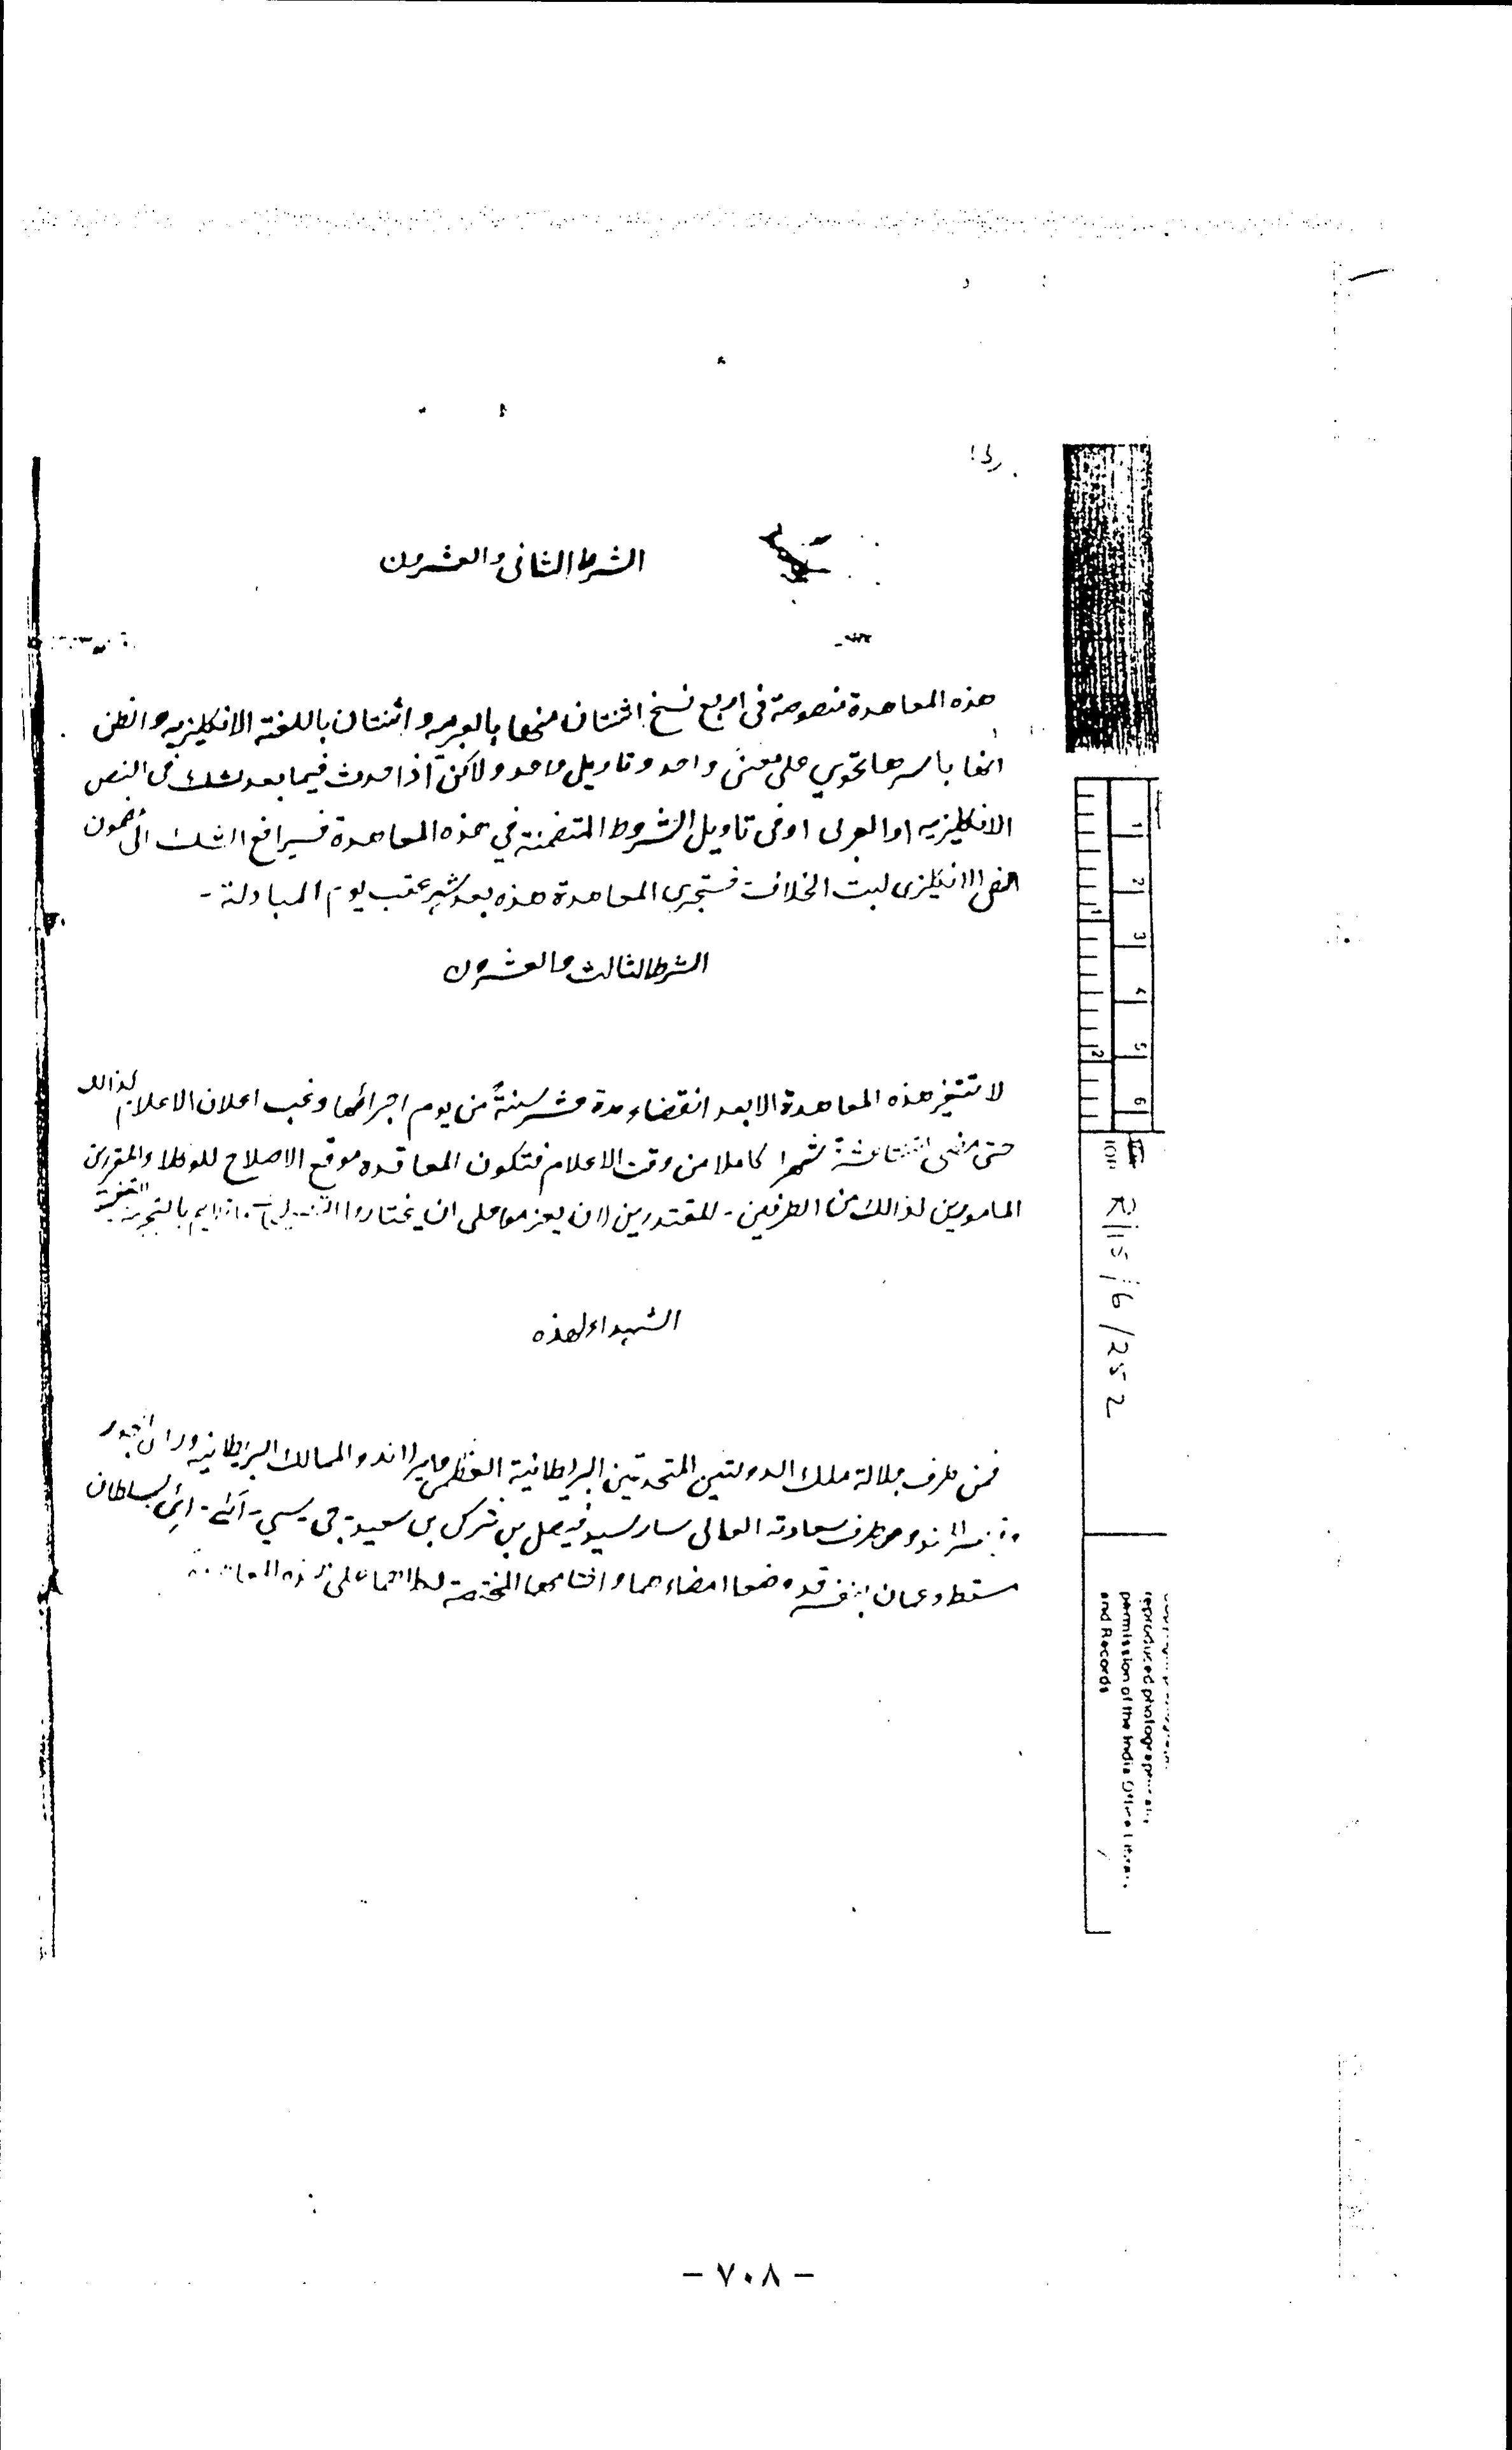 الشرط الثاني والعشرون
هذه المعاهدة منصوصة في اربع نسخ اثنتان منها بالعربيه و اثنتان باللغة الانكليزيه و انظن
انها باسرها تحوي على معنى واحد و تاويل واحد ولاكن اذا حدث فيما بعد شك في النص
الانكليزيه او العربى اوفى تاويل الشروط المتضمنة في هذه المعاهدة فسيرافع الشك الى مضمون
النص الانكليزى لبت الخلاف فستجرى المعاهدة هذه بعد شهر عقب يوم المبادلة -
الشرط الثالث والعشرون
لا تتغير هذه المعاهدة الا بعد انقضاء مدة عشر سنةً من يوم اجرائها وغب اعلان الاعلام لذالك
حتى مضى شهرا كاملا من وقت الاعلام فتكون المعاقده موقع الاصلاح للوكلا والمقررين
المامورين لذالك من الطرفين - للمقتدرين ان يعزموا على ان يختاروا بالتجربة
الشهداء لهذه
فمن طرف جلالة ملك الدولتين المتحدتين البريطانية العظمى و ايرلاند و الممالك البريطانيه
و من طرف سعادته العالى سار سيد فيصل بن تركى بن سعيد - جى - سي - آئى - ائى سلطان
مسقط و عمان بنفسه قد وضعا امضاءهما و اختامهما المختصة لهما على هذه
- ٧٠٨ -
1 2 3 4 5 6
1 2
IOR R/15/6/252
reproduced photographically
permission of the India Office Library
and Records